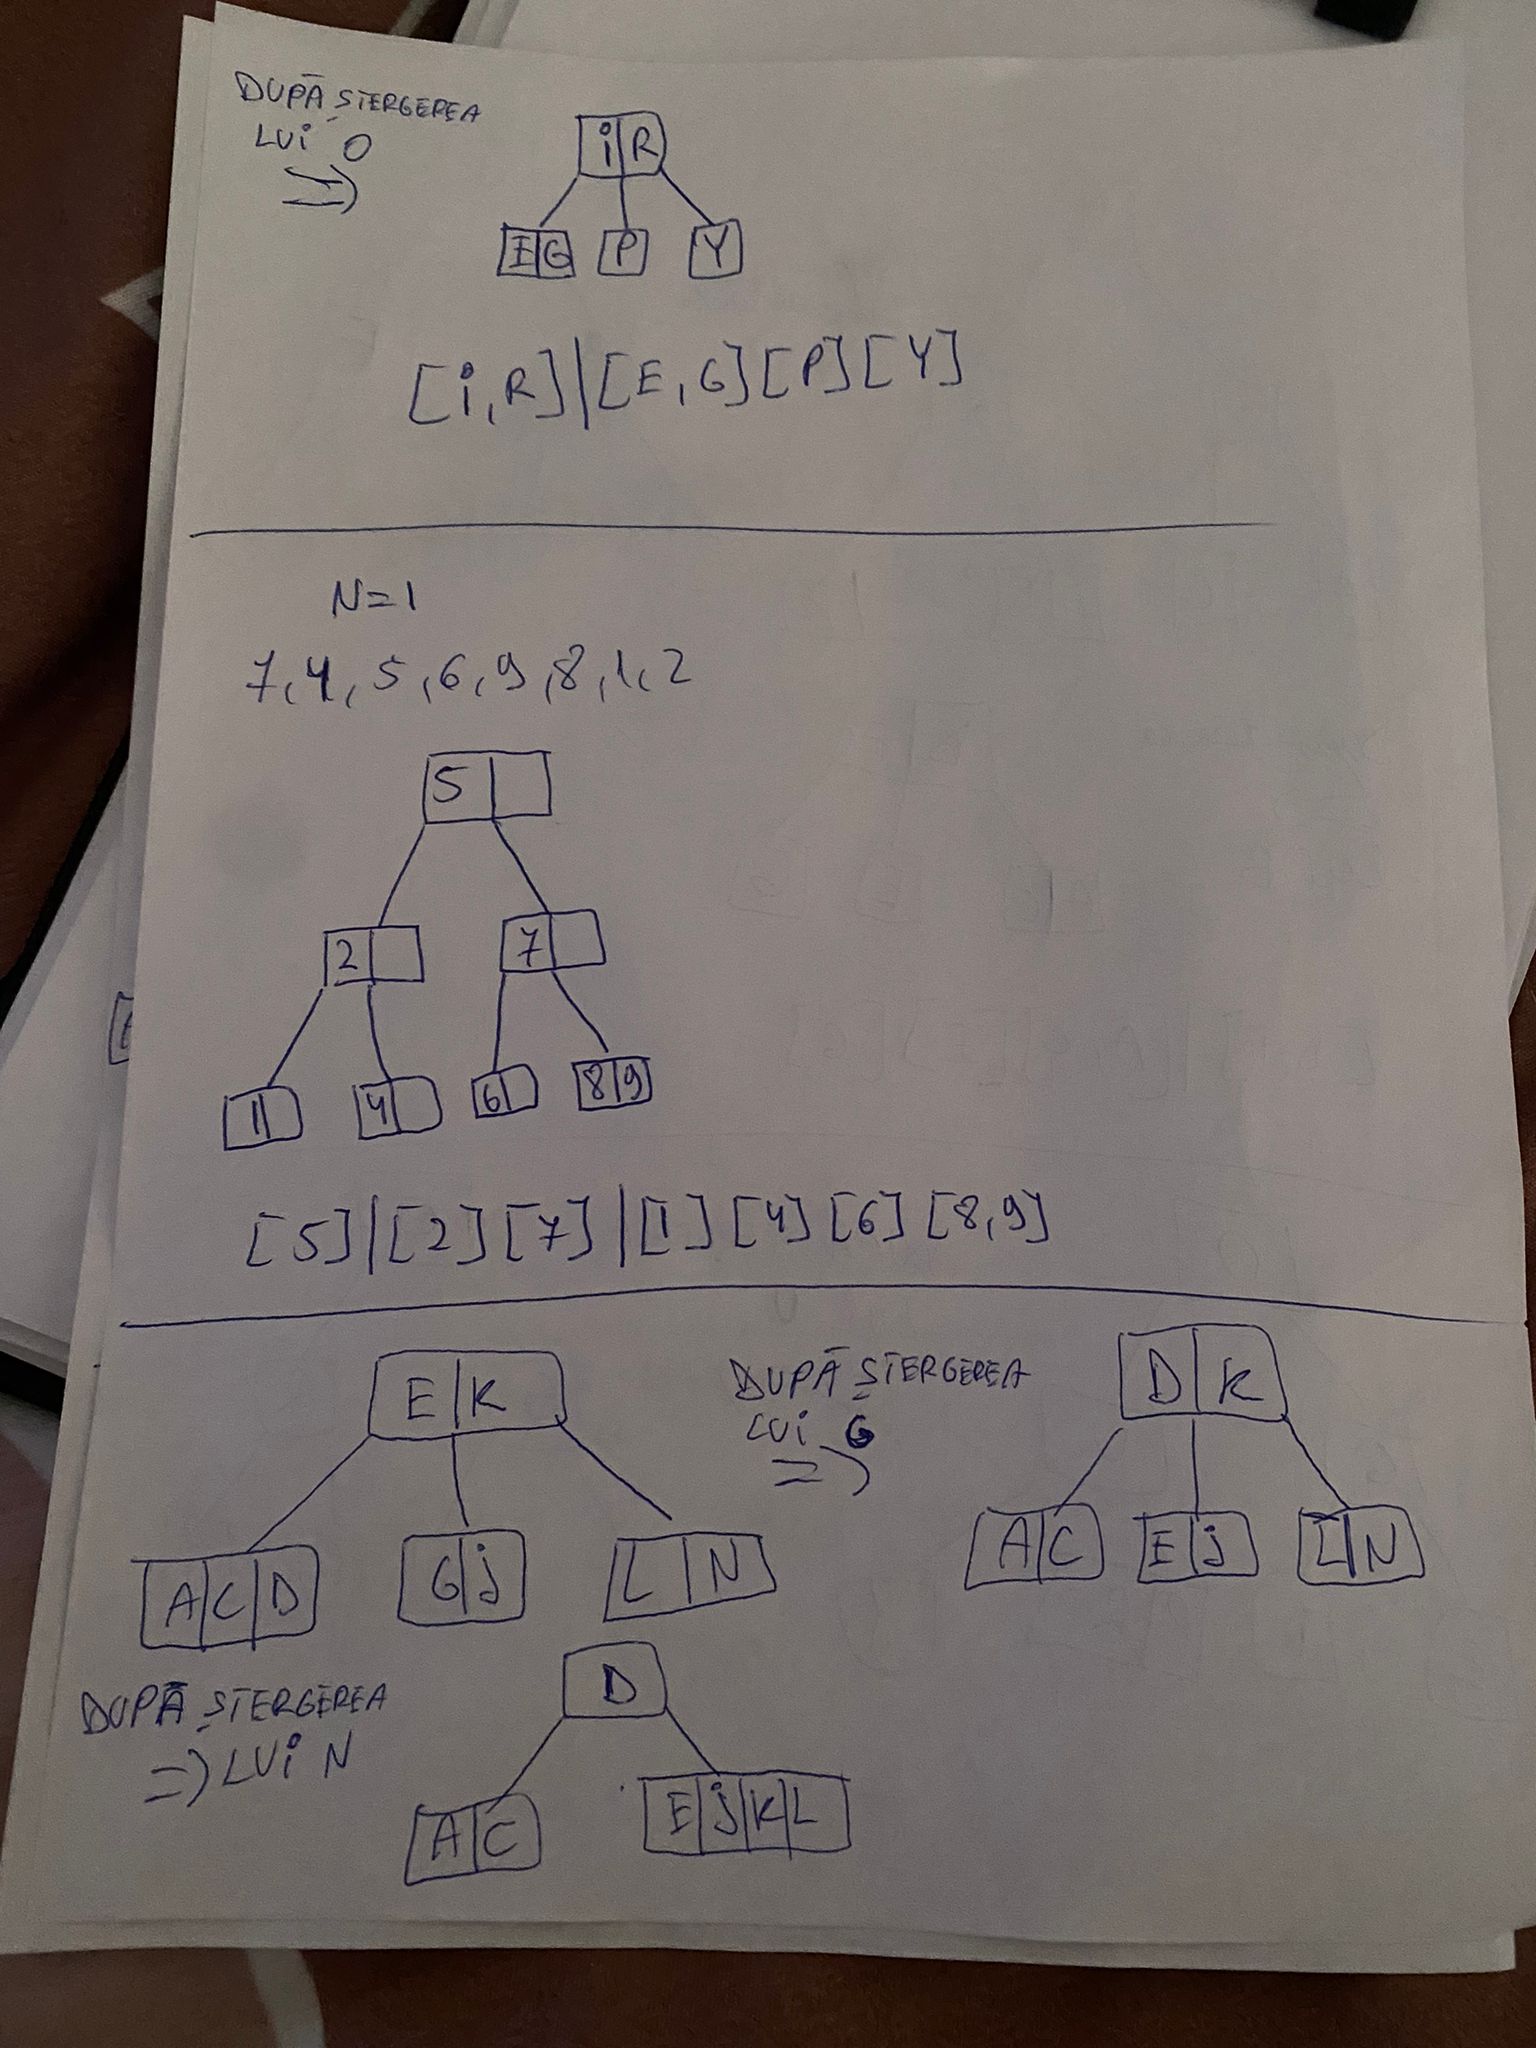 DUPĂ ȘTERGEREA
LUI O
=>
i R
E G P Y
[i,R]|[E,G][P][Y]
N=1
7,4,5,6,9,8,1,2
5
2 7
1 4 6 8 9
[5]|[2][7]|[1][4][6][8,9]
E K
A C D G j L N
DUPĂ ȘTERGEREA
LUI G
=>
D K
A C E j L N
DUPĂ ȘTERGEREA
=> LUI N
D
A C E j K L